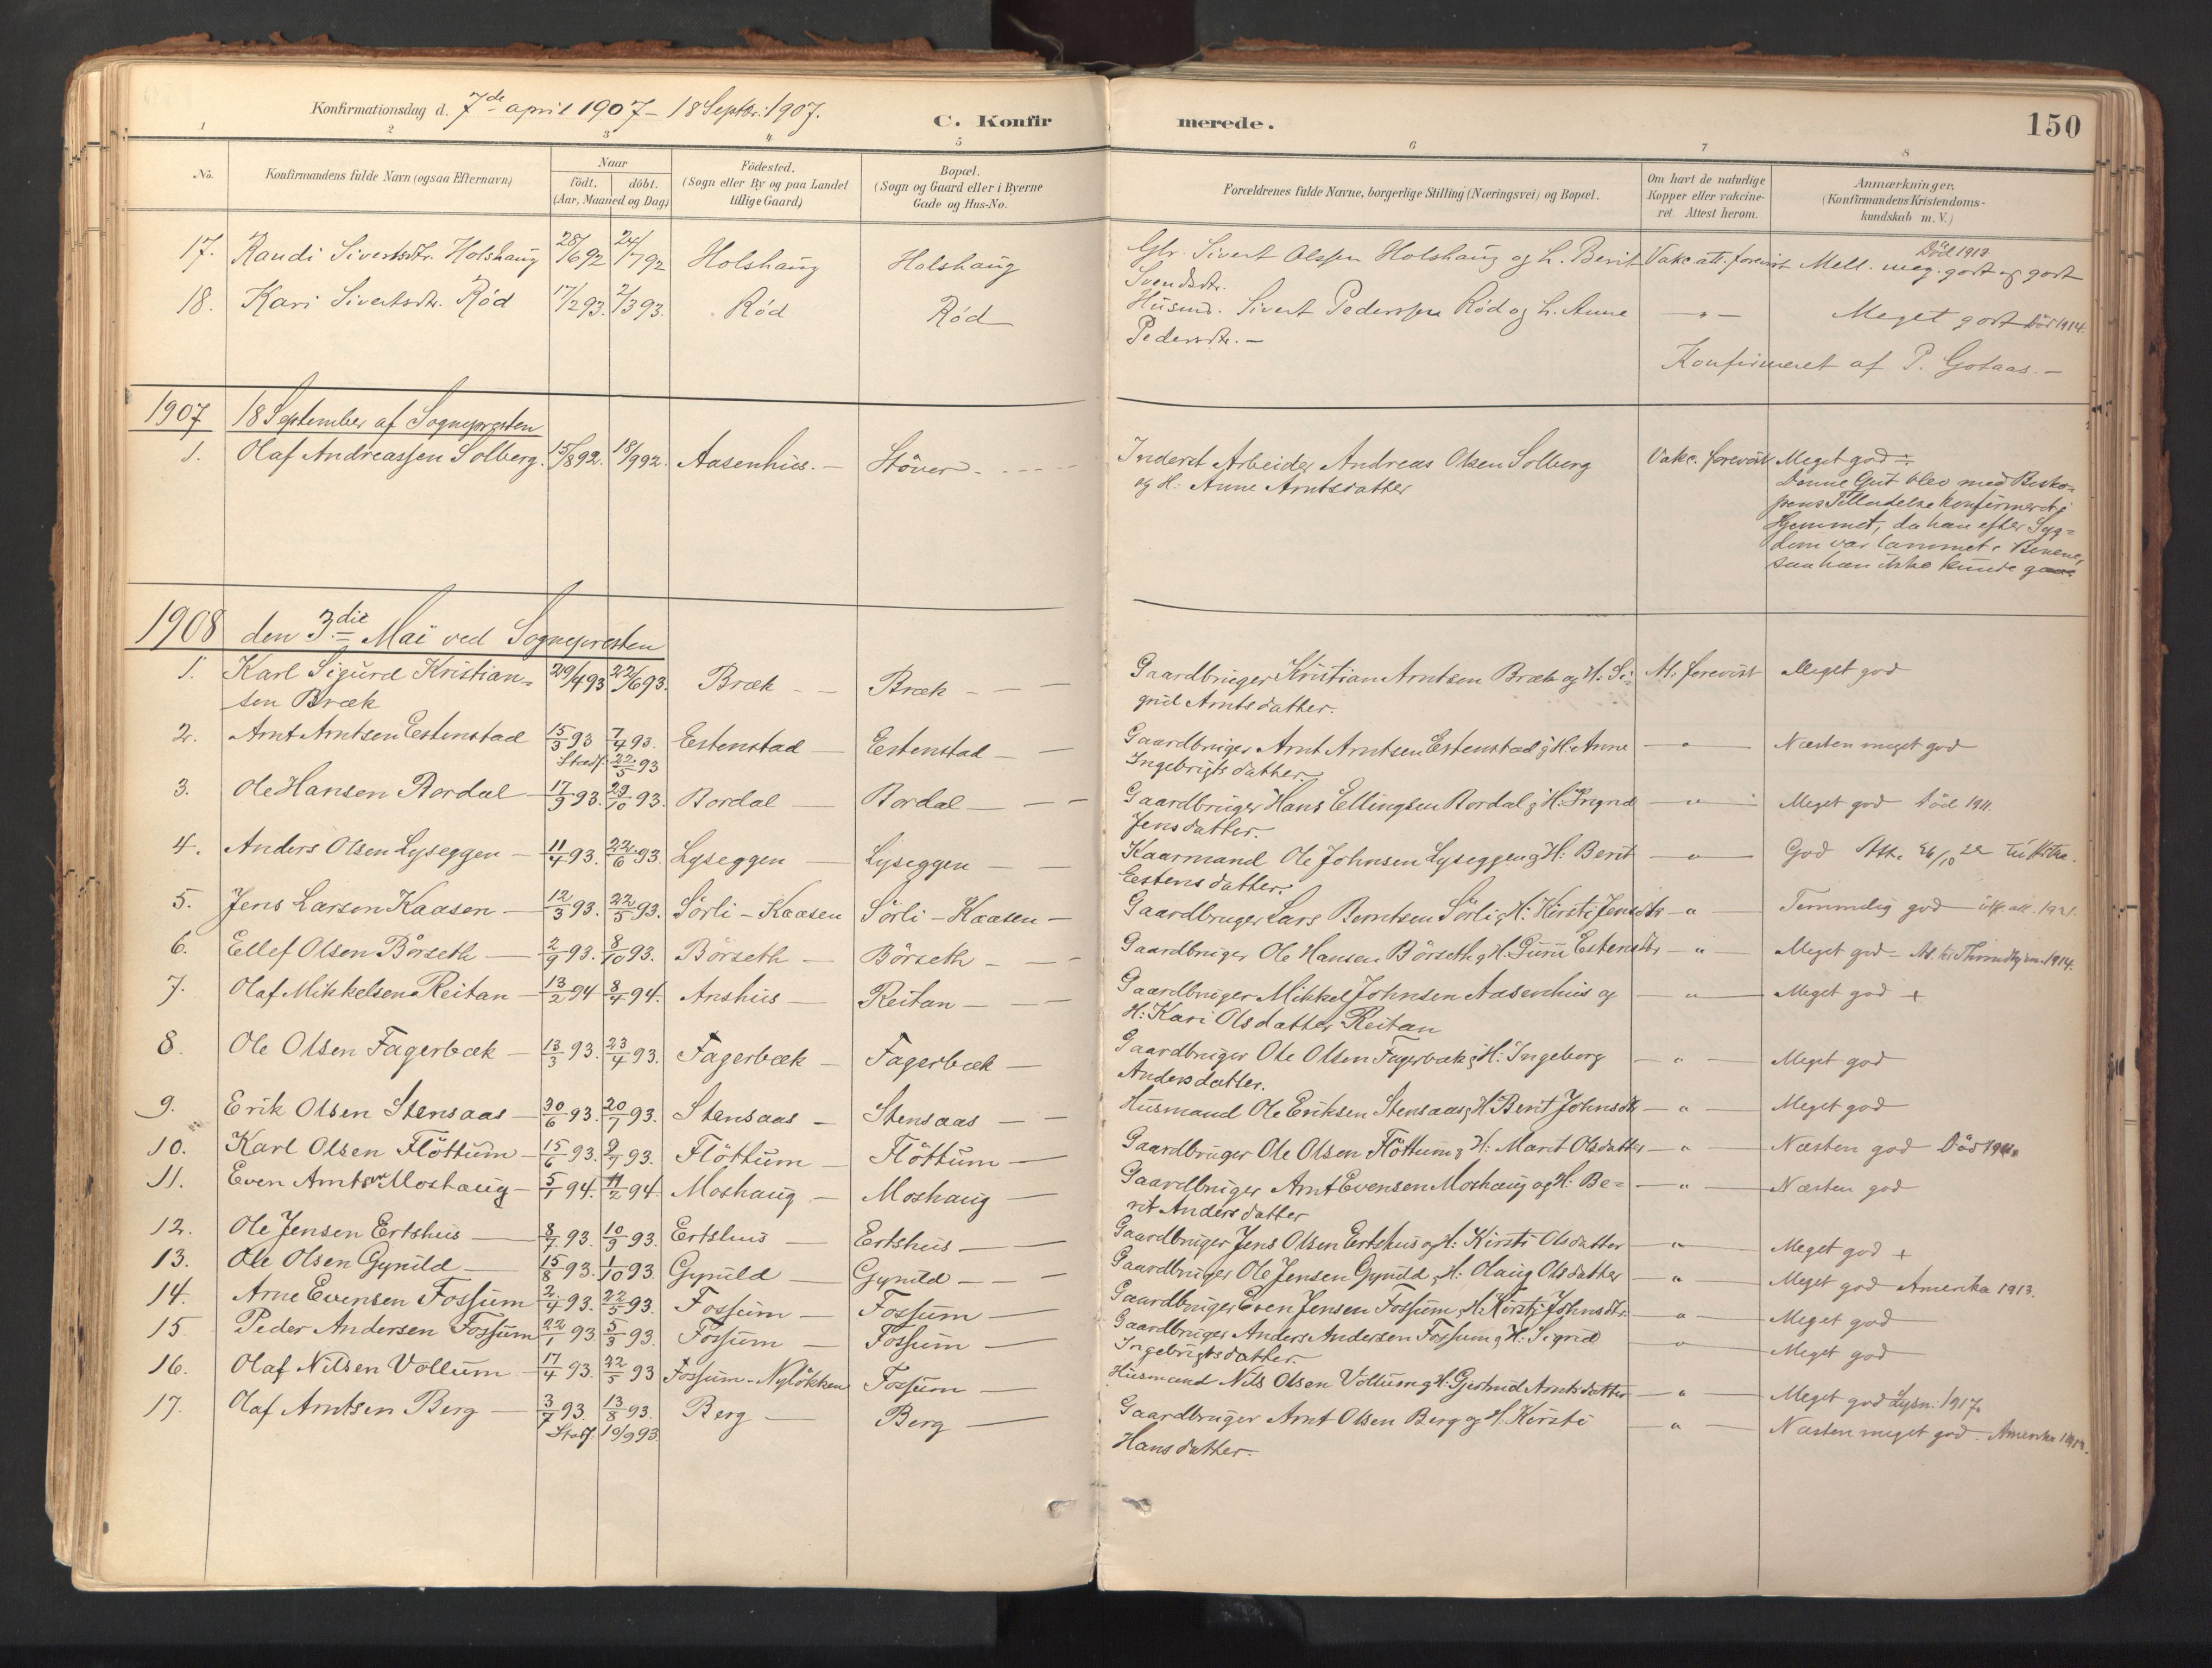 Konfirmationsdag d. 7de april 1907 - 18 Septbr. 1907.
C. Konfirmerede.
150
1 2 3 4 5 6 7 8
No. Konfirmandens fulde Navn (ogsaa Efternavn) Naar født. døbt. (Aar, Maaned og Dag) Fødested. (Sogn eller By og paa Landet tillige Gaard) Bopæl. (Sogn og Gaard eller i Byerne Gade og Hus-No. Forældrenes fulde Navne, borgerlige Stilling (Næringsvei) og Bopæl. Om havt de naturlige Kopper eller vakcineret. Attest herom. Anmærkninger. (Konfirmandens Kristendomskundskab m. V.)
17. Randi Sivertsdtr. Holshaug 28/6 92 24/7 92 Holshaug Holshaug Gbr. Sivert Olssen Holshaug og h. Berit Svendsdtr. Vakc. att. forevist Mell. meg. godt og godt Död 1913
18. Kari Sivertsdtr. Rød 17/2 93. 2/3 93. Rød Rød Husmd. Sivert Pederssen Rød og h. Anne Pedersdtr. - - " - Meget godt Död 1914.
Konfirmeret af P. Gotaas. -
1907 18 September af Sognepresten
1. Olaf Andreassen Solberg. 15/8 92. 18/9 92. Aasenhus. - Støver - Inderst Arbeider Andreas Olsen Solberg og H: Anne Arntsdatter Vakc. forevist Meget god
Denne Gut blev med Bisko-
pens Tilladelse konfirmert i
Hjemmet, da han efter Syg-
dom var lammet i Benene,
saa han ikke kunde gaae
1908 den 3die Mai ved Sognepresten
1. Karl Sigurd Kristiansen Bræk 29/4 93 22/6 93. Bræk - - Bræk - - - Gaardbruger Kristian Arntsen Bræk og H: Sigrid Arntsdatter. At. forevist Meget god
2. Arnt Arntsen Estenstad 15/3 93 7/4 93. Stadf. 22/5 93 Estenstad - Estenstad - Gaardbruger Arnt Arntsen Estenstad og H: Anne Ingebrigtsdatter. - " - Næsten meget god
3. Ole Hansen Bordal - 17/9 93. 29/10 93. Bordal - Bordal - - - Gaardbruger Hans Ellingsen Bordal og H: Ingrid Jensdatter. - " - Meget god Död 1911.
4. Anders Olsen Lyseggen - 11/4 93. 22/6 93. Lyseggen - Lyseggen - - Kaarmand Ole Johnsen Lyseggen og H: Berit Estensdatter. - " - God Att. 26/10 22
5. Jens Larsen Kaasen - 12/3 93. 22/5 93. Sörli - Kaasen Sörli - Kaasen - Gaardbruger Lars Berntsen Sörli og H: Kirsti Jensdtr - " - Temmelig god - utf. att. 1921.
6. Ellef Olsen Börseth - 2/9 93. 8/10 93. Börseth - Börseth - - Gaardbruger Ole Hansen Börseth og H. Guru Estensdtr - " - Meget god - At. til Throndhjem 1914.
7. Olaf Mikkelsen Reitan - 13/2 94 8/4 94. Anshus - Reitan - - - Gaardbruger Mikkel Johnsen Aasenhus og H: Kari Olsdatter Reitan - " - Meget god +
8. Ole Olsen Fagerbæk - 13/3 93. 23/4 93. Fagerbæk - Fagerbæk - Gaardbruger Ole Olsen Fagerbæk og H: Ingeborg Andersdatter. - " - Meget god
9. Erik Olsen Stensaas - 30/6 93. 20/7 93. Stensaas - Stensaas - - Husmand Ole Eriksen Stensaas og H. Berit Johnsdtr - " - Meget god
10. Karl Olsen Flöttum - 15/6 93. 9/7 93. Flöttum - Flöttum - Gaardbruger Ole Olsen Flöttum og H: Marit Olsdatter - " - Næsten god Död
11. Even Arntsen Moshaug - 5/1 94. 11/2 94. Moshaug - Moshaug - Gaardbruger Arnt Evensen Moshaug og H: Berit Andersdatter - " - Næsten god
12. Ole Jensen Ertshus - 8/7 93. 10/9 93. Ertshus - Ertshus - - Gaardbruger Jens Olsen Ertshus og H: Kirsti Olsdatter - " - Meget god +
13. Ole Olsen Gynild - 15/8 93. 1/10 93. Gynild - Gynild - - - Gaardbruger Ole Jensen Gynild, H: Olaug Olsdatter - " - Meget god Amerika 1913.
14. Arne Evensen Fossum 2/4 93. 22/5 93. Fossum - Fossum - Gaardbruger Even Jensen Fossum, H: Kirsti Johnsdtr. - " - Meget god
15 Peder Andersen Fossum 22/1 93 5/3 93. Fossum - Fossum - Gaardbruger Anders Andersen Fossum og H: Sigrid Ingebrigtsdatter. - " - Meget god
16. Olaf Nilsen Vollum - 17/4 93. 22/5 93 Fossum - Nylökken Fossum - Husmand Nils Olsen Vollum og H: Gjertrud Arntsdatter - " - Meget god Lysn. 1917.
17. Olaf Arntsen Berg - 3/7 93. 13/8 93. Stadf. 10/9 93. Berg - Berg - Gaardbruger Arnt Olsen Berg og H. Kirsti Hansdatter. - " - Næsten meget god. Amerika